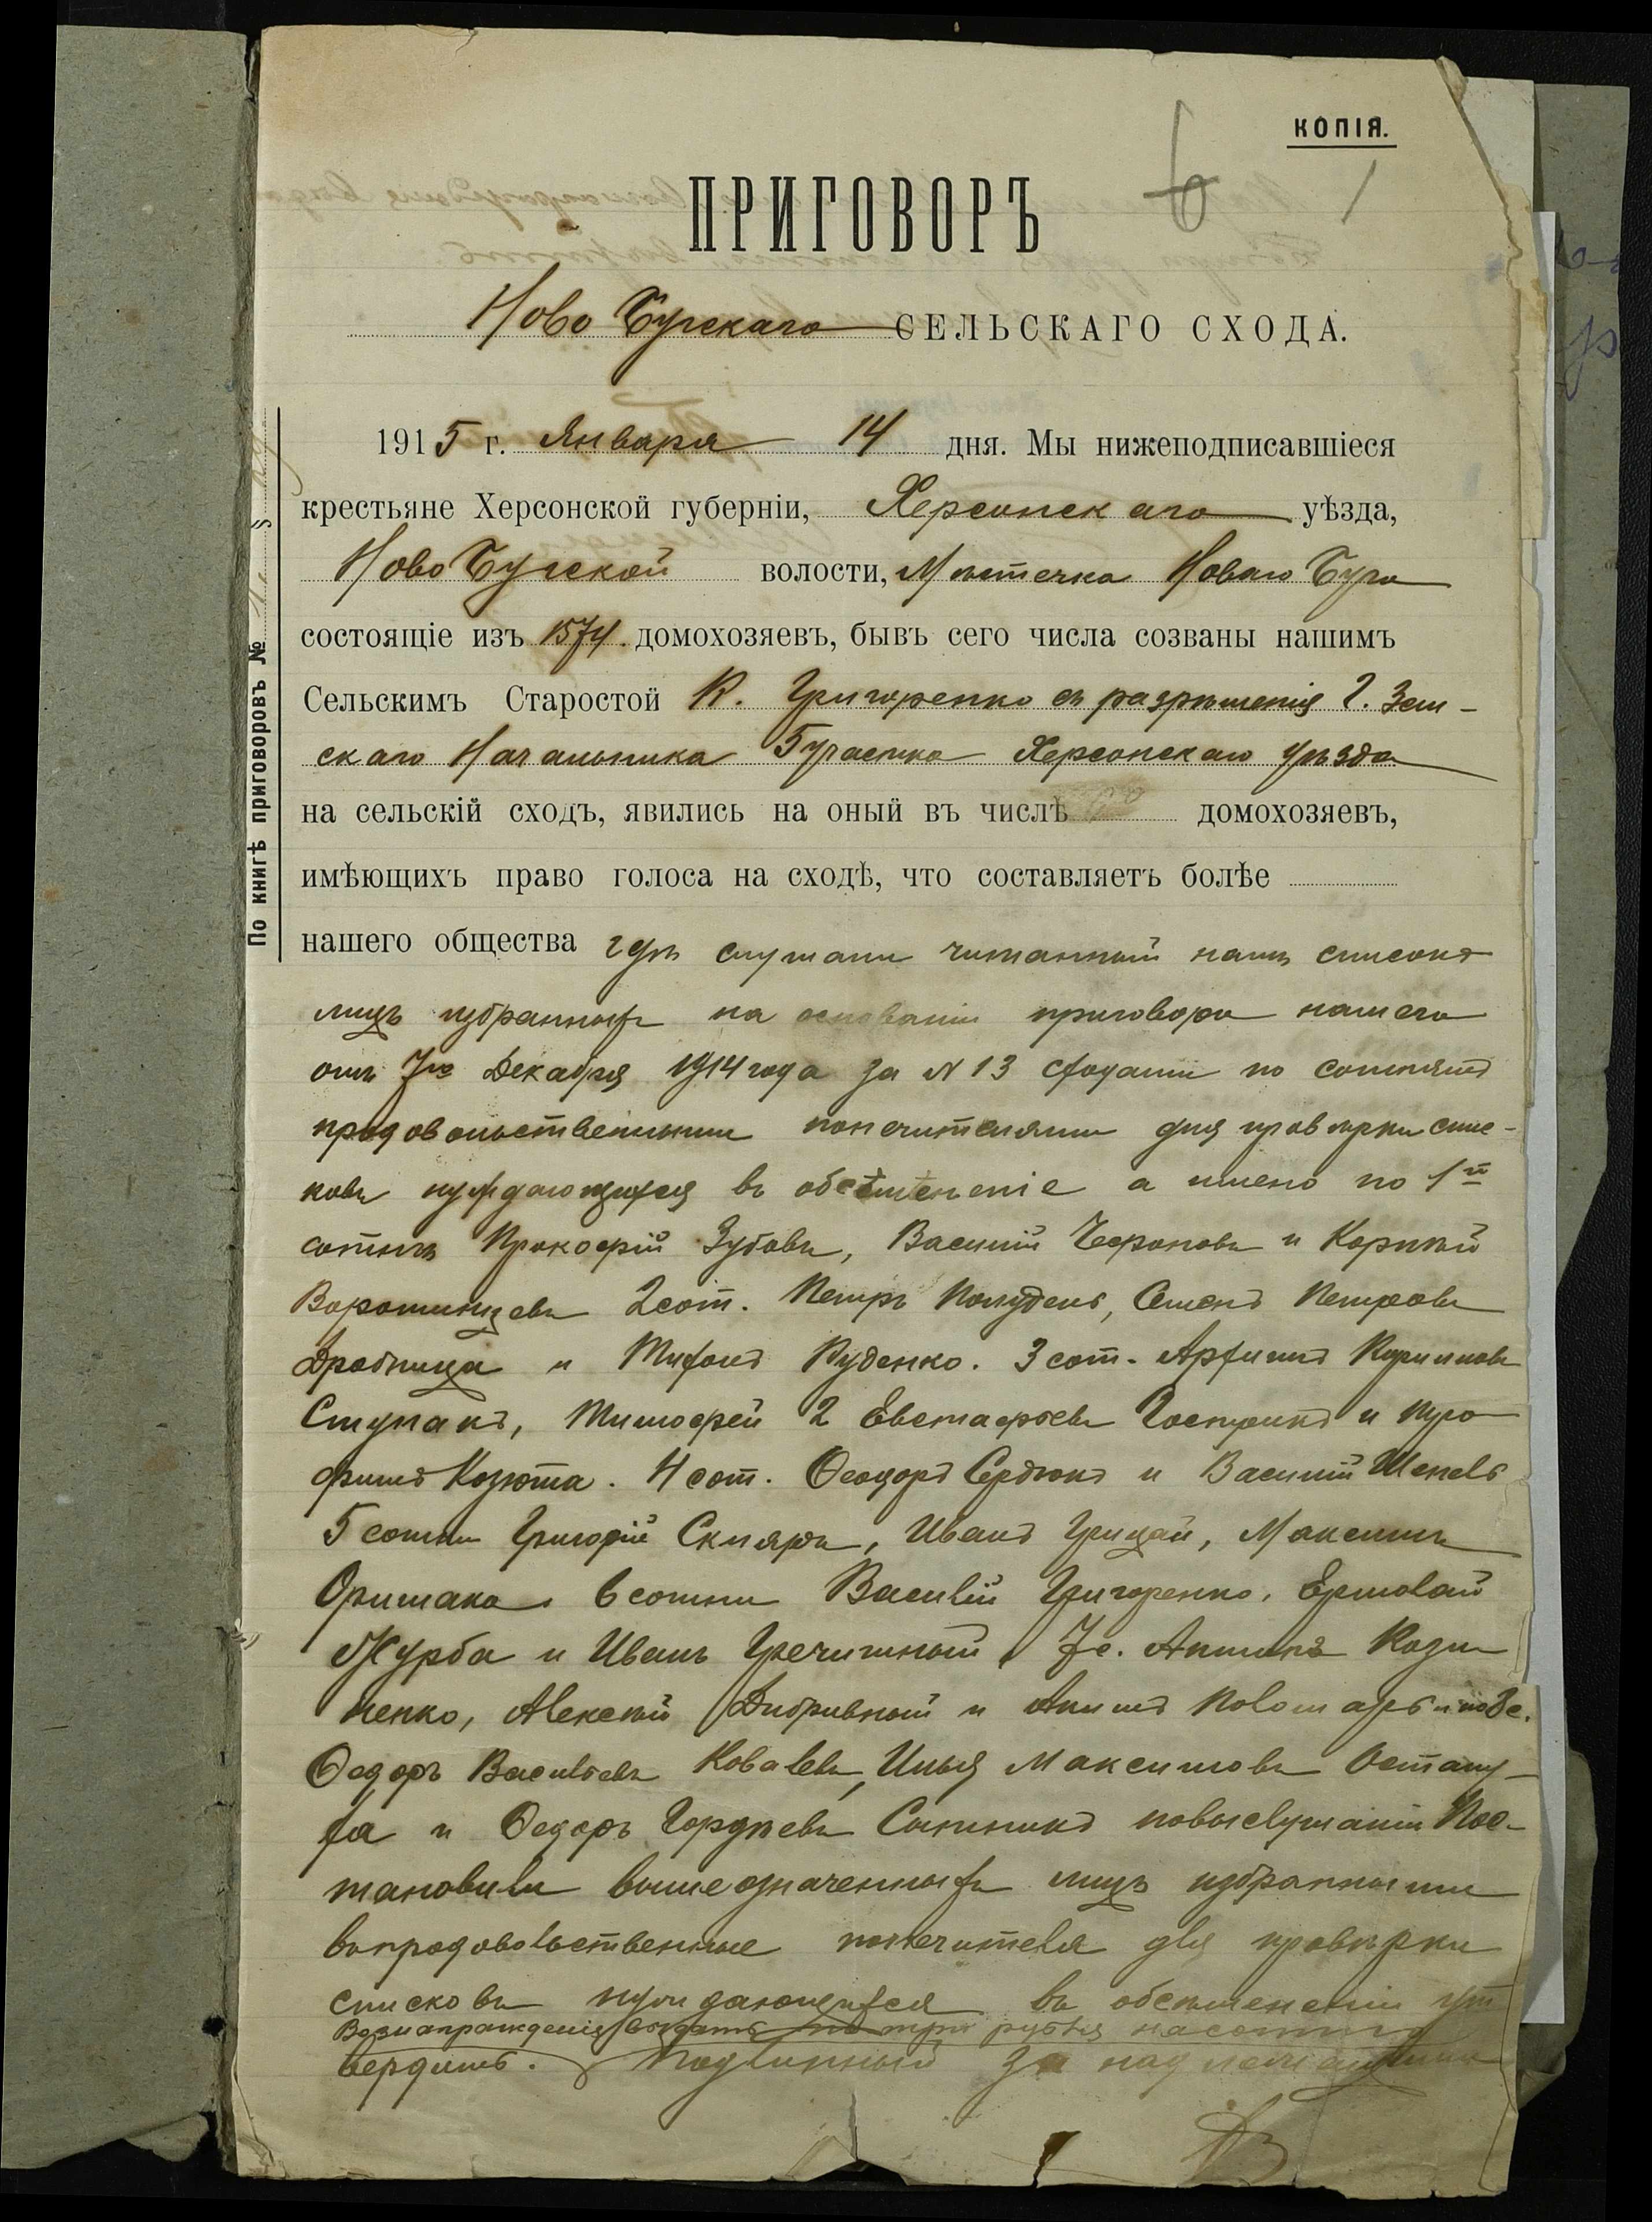 КОПІЯ.
ПРИГОВОРЪ
Ново Бугскаго СЕЛЬСКАГО СХОДА.
1915 г. Января 14 дня. Мы нижеподписавшіеся
крестьяне Херсонской губерніи, Херсонскаго уѣзда,
Ново Бугской волости, Мѣстечка Новаго Буга
состоящіе изъ 1574. домохозяевъ, бывъ сего числа созваны нашимъ
Сельскимъ Старостой К. Григоренко съ разрѣшенія Г. Зем-
скаго Начальника 5 участка Херсонскаго уѣзда
на сельскій сходъ, явились на оный въ числѣ домохозяевъ,
имѣющихъ право голоса на сходѣ, что составляетъ болѣе
нашего общества гдѣ слушали читанный намъ списокъ
лицъ избранныхъ на основаніи приговора нашего
отъ 7го Декабря 1914 года за N 13 сходами по сотнямъ
продовольственными попечителями для провѣрки спис-
ковъ нуждающихся въ обсѣмененіе а имено по 1й
сотнѣ Прокофій Зубовъ, Василій Сафоновъ и Корнѣй
Воротинцевъ 2 сот. Петръ Полудень, Семенъ Петровъ
Дробница и Тихонъ Руденко. 3 сот. Архипъ Кириловъ
Ступакъ, Тимофей 2 Евстафьевъ Гострикъ и Тро
фимъ Козюта. 4 сот. Феодоръ Сердюкъ и Василій
5 сотни Григорій Скляръ, Иванъ Грицай, Максимъ
6 сотни Василій Григоренко, Ермолай
Журба и Иванъ Гречишный 7 с. Антонъ Кози
ненко, Алексѣй и Акимъ Поломарь и по 8 с.
Федоръ Васильевъ Ковалевъ, Илья Максимовъ Остапу-
ха и Федоръ Гордѣевъ Сытникъ по выслушаніи Пос-
тановили вышеозначенныхъ лицъ избранными
въ продовольственные попечителя для провѣрки
списковъ нуждающихся въ обсѣмененіи ут
Вознагражденія выдать по три рубля на сотню
вердить. Подлинный за надлежащимъ
По книгѣ приговоровъ №